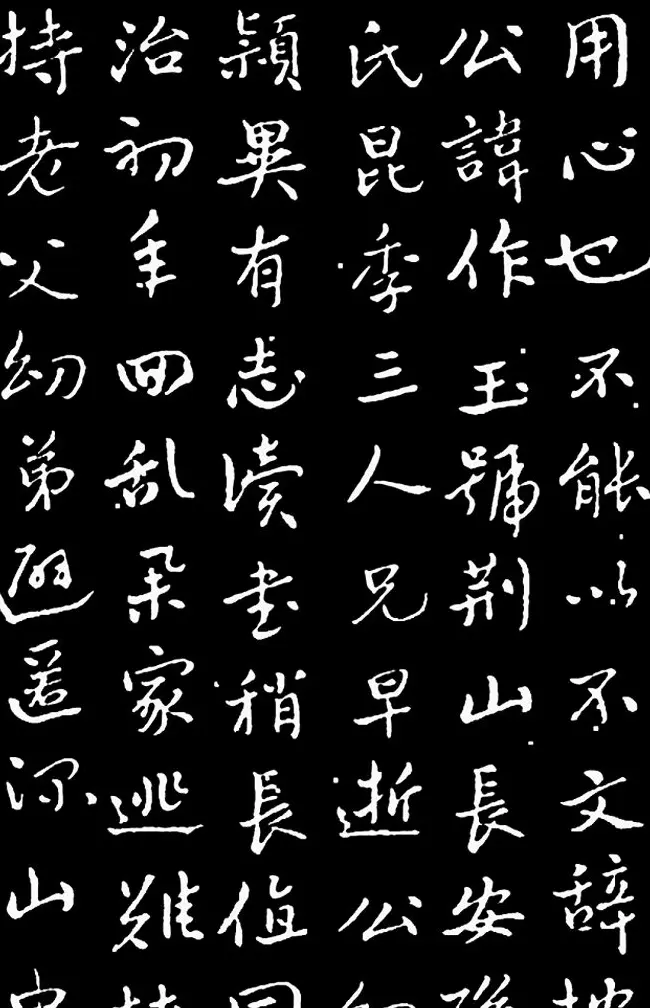 用心也不能以不文辞
公諱作玉號荆山長安
氏昆季三人兄早逝公幼
穎異有志讀書稍長值同
治初年回乱家逃難
持老父幼弟避匿深山